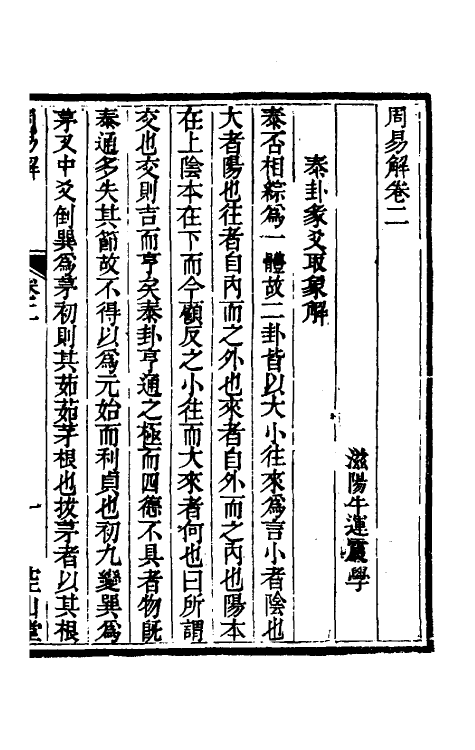 周易解卷二
滋陽牛運震學
泰卦象爻取象解
泰否相綜為一體故二卦皆以大小往來為言小者陰也
大者陽也往者自內而之外也來者自外而之內也陽本
在上陰本在下而今顧反之小往而大來者何也曰所謂
交也交則吉而亨矣泰卦亨通之極而四德不具者物旣
泰通多失其節故不得以為元始而利貞也初九變巽為
茅又中爻倒巽為茅初則其茹茹茅根也拔茅者以其根
周易解 卷二 一 空山堂